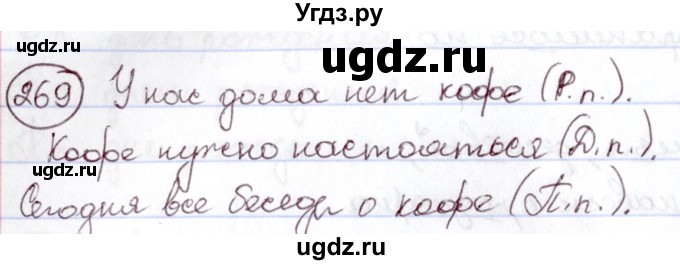 Угдз.ру
ugdz.ru ugdz.ru ugdz.ru
269 У нас дома нет кофе (Р.п.).
Кофе нужно настояться (Д.п.).
ugdz.ru ugdz.ru
Сегодня все беседы о кофе (П.п.).
ugdz.ru